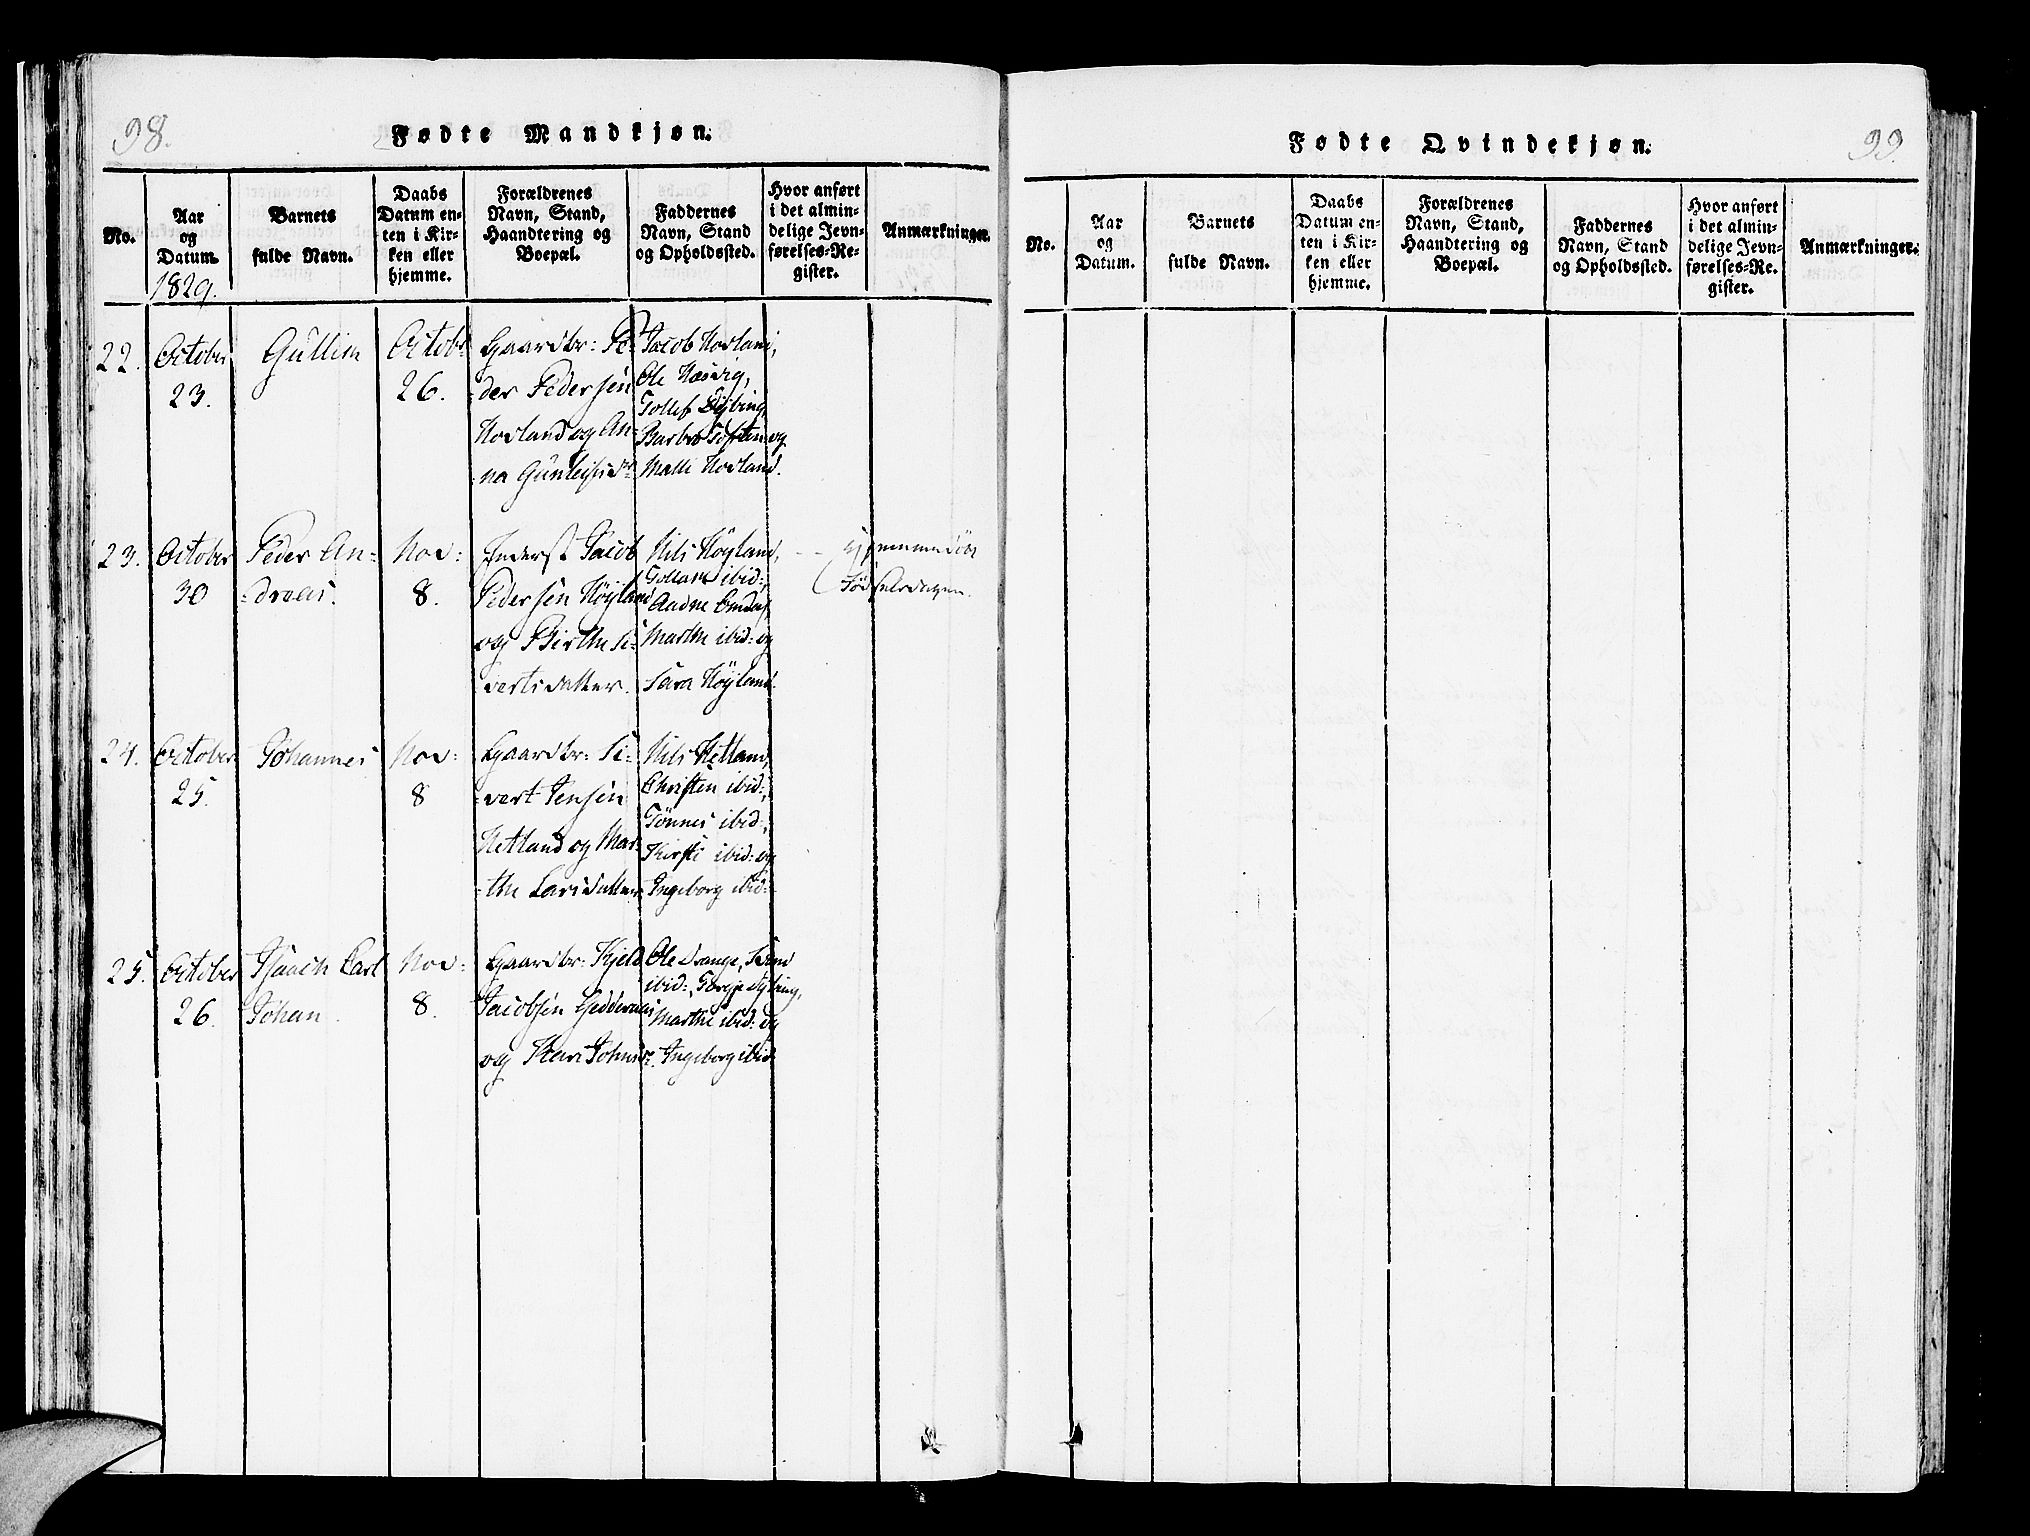 98.
Fødte Mandkjøn.
No.
Aar
og
Datum.
1829.
Barnets
fulde Navn.
Daabs
Datum en-
ten i Kir-
ken eller
hjemme.
Forældrenes
Navn, Stand,
Haandtering og
Boepæl.
Faddernes
Navn, Stand
og Opholdssted.
Hvor anført
i det almin-
delige Jevn-
førelses-Re-
gister.
Anmærkninger.
22.
October
23.
Gullim
Octobr
26.
Gaardbr: Pe-
-der Pedersen
Hovland og An-
-na
Jacob Hovland,
Ole
Tollef Dybing,
Barbro og
Malli Hovland.
23.
October
30
Peder An-
-dreas.
Nov:
8.
Inderst Jacob
Pedersen Høyland
og Birthe Si-
-vertsdatter.
Nils Høyland,
ibid:,
Aadne
Marthe ibid: og
Sara Høyland.
Fødselsdagen.
24.
October
25.
Johannes
Nov:
8
Gaardbr: Si-
-vert Jensen
Hetland og Mar-
-the Larsdatter
Nils Hetland,
Christen ibid:,
Tønnes ibid:,
Kirsti ibid: og
Ingeborg ibid:
25.
October
26.
Isaach Carl
Johan.
Nov:
8.
Gaardbr: Kjeld
Jacobsen
og Kari Johnsdr.
Ole Drange,
ibid:, Dybing,
Marthe ibid: og
Ingeborg ibid
99.
Fødte Qvindekjøn.
No.
Aar
og
Datum.
Barnets
fulde Navn.
Daabs
Datum en-
ten i Kir-
ken eller
hjemme.
Forældrenes
Navn, Stand,
Haandtering og
Boepæl.
Faddernes
Navn, Stand
og Opholdssted.
Hvor anført
i det almin-
delige Jevn-
førelses-Re-
gister.
Anmærkninger.